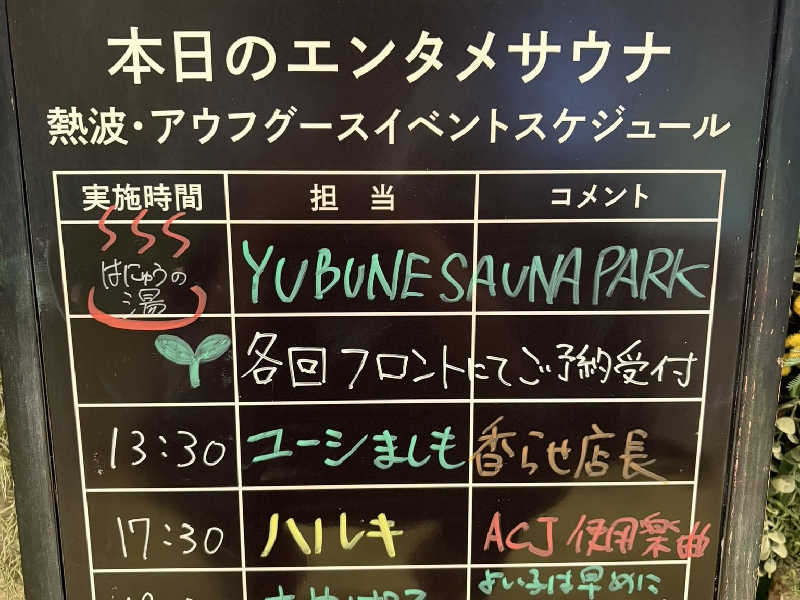 本日のエンタメサウナ
熱波・アウフグースイベントスケジュール
実施時間 担当 コメント
はにゅうの
湯
YUBUNE SAUNA PARK
各回フロントにてご予約受付
13:30 ユーシましも 香らせ店長
17:30 ハルキ ACJ使用楽曲
よい子は早めに